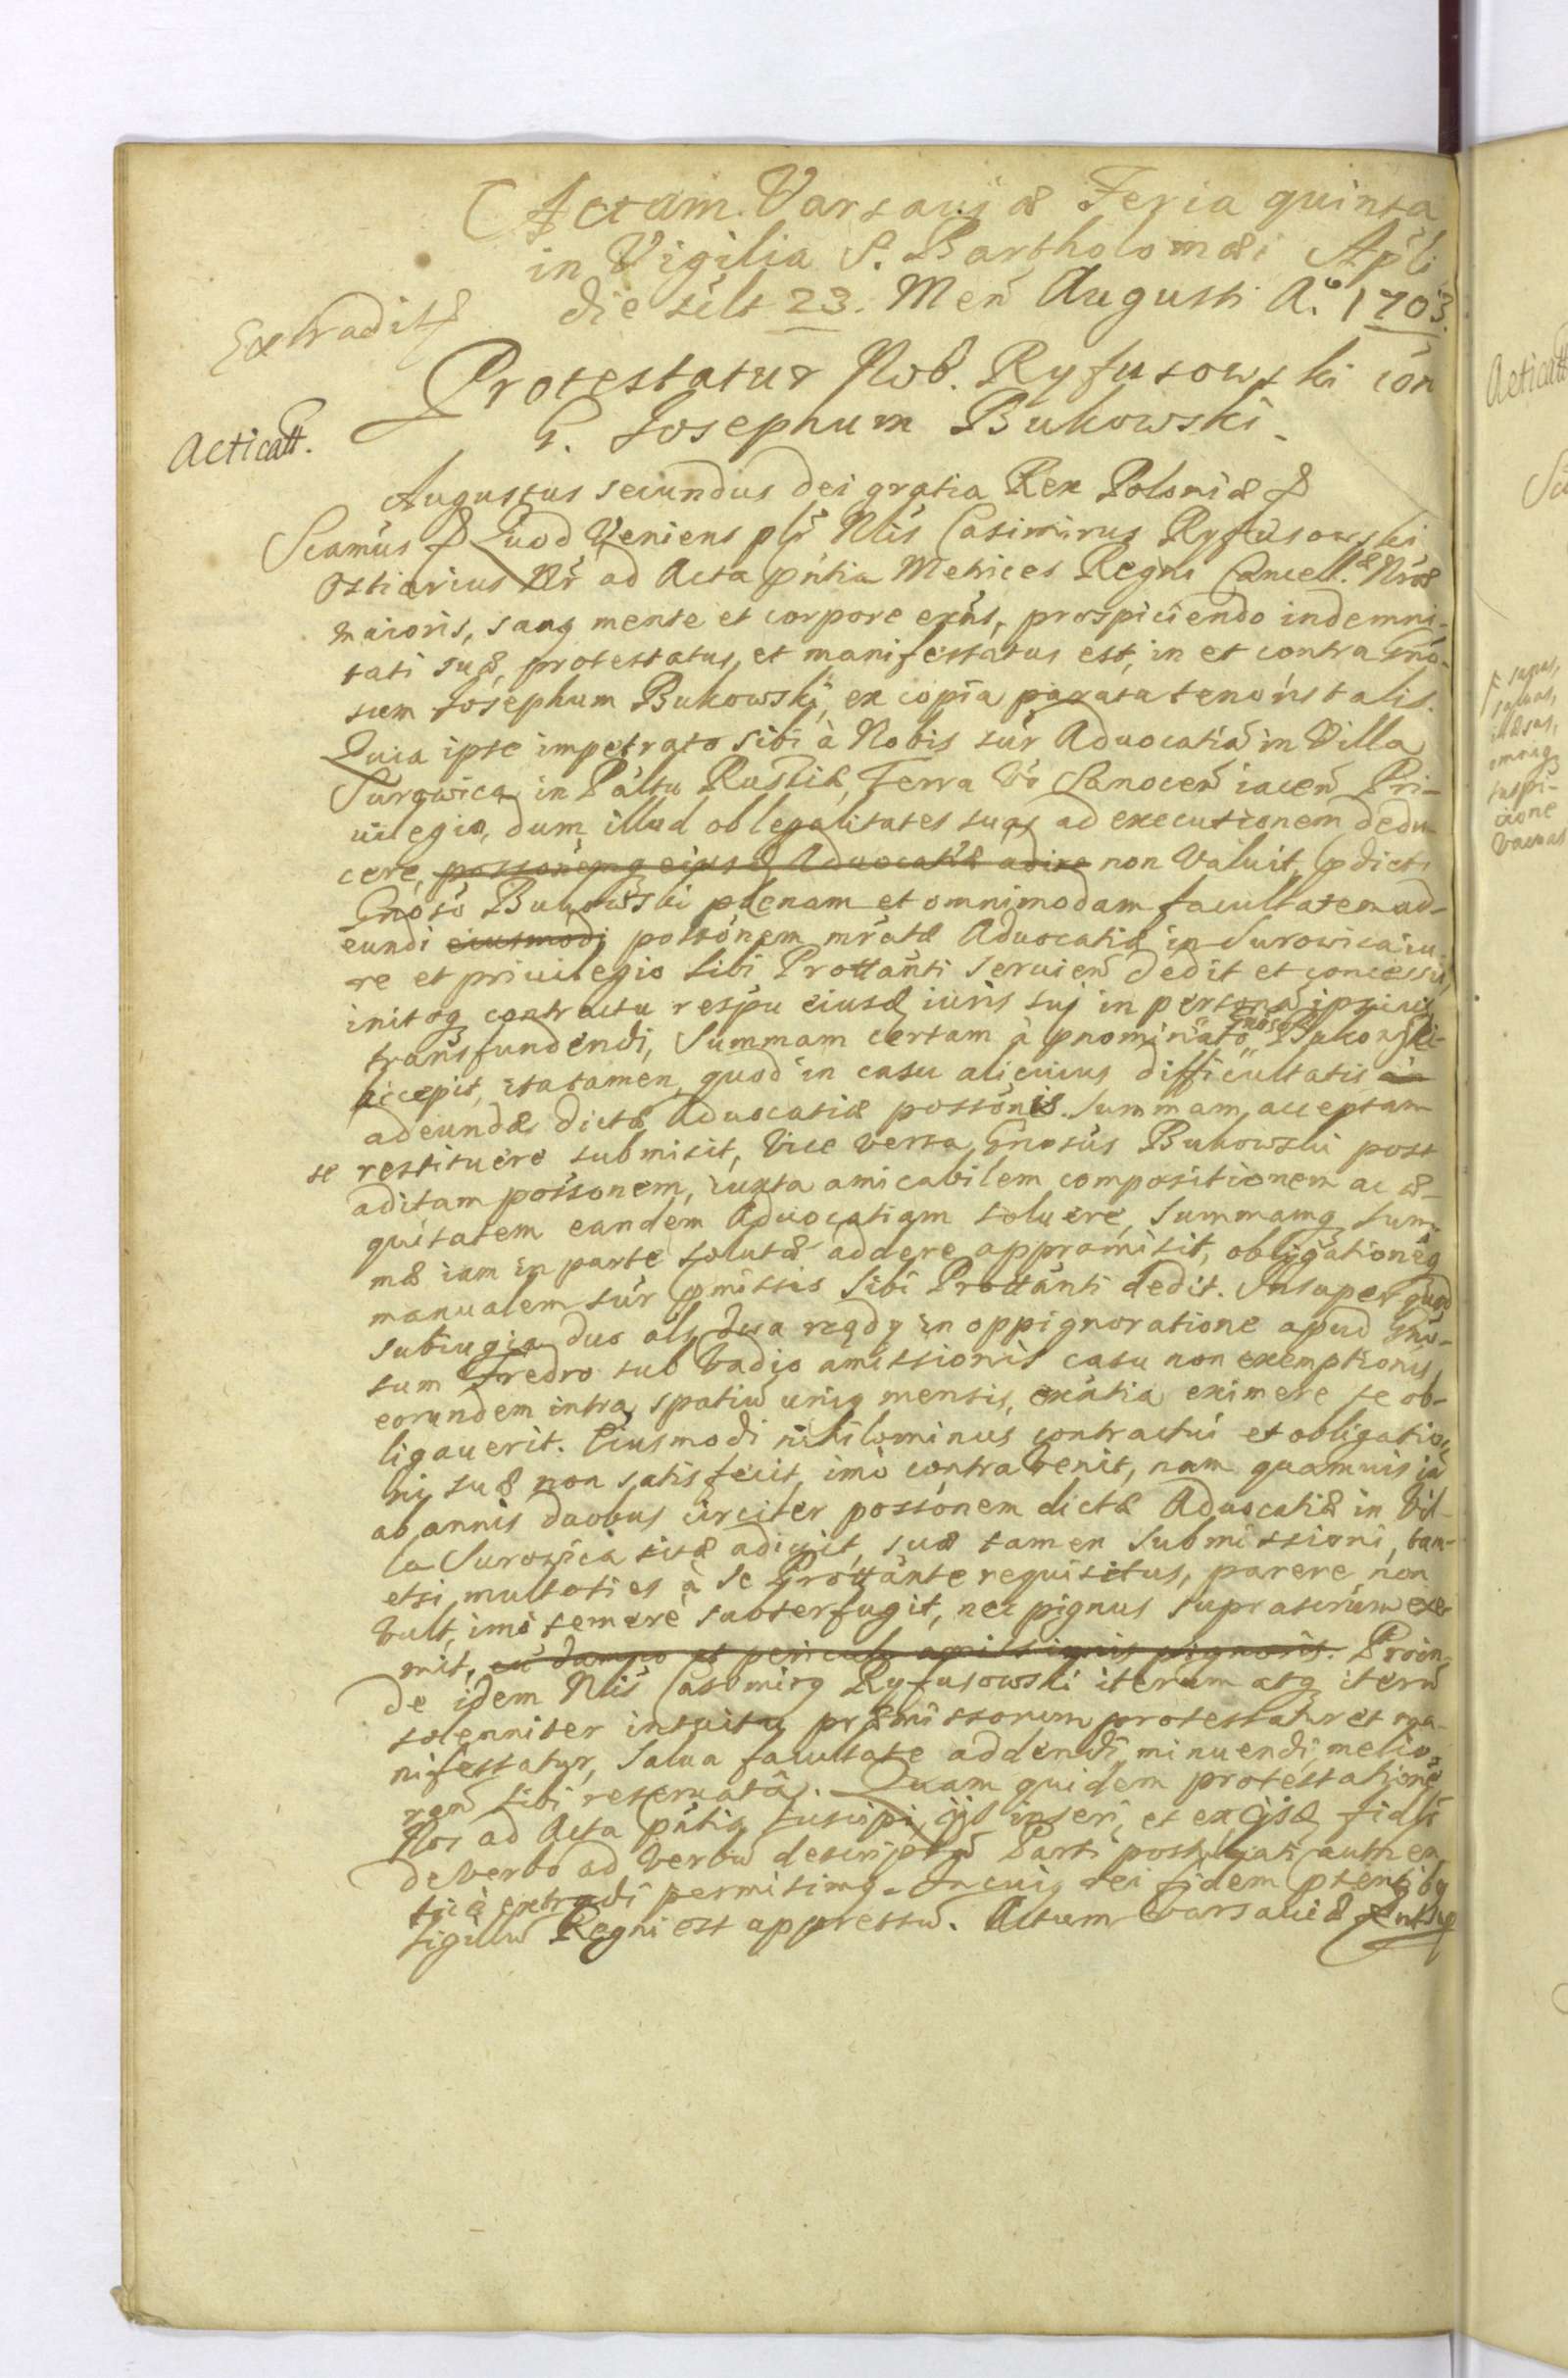 Actum Varsauiæ Feria quinta
in Vigilia S. Bartholomæi Apli
die silt 23. Men Augusti A.o 1703.
Extradit
Protestatur Nob. Ryfusowski con
G. Josephum Bukowski.
Acticatt.
Augustus secundus Dei gratia Rex Poloniæ
Scamus Quod Veniens plr Nlis Casimirus Ryffusowski
Ostiarius Nr ad Acta pntia Metrices Regni Cancell.æ Nræ
maioris, sanq mente et corpore exns, prospiciendo indemni-
tati suæ, protestatus, et manifestatus est, in et contra Gno-
sum Josephum Bukowski, ex copia parata tenoris talis.
Quia ipse impetrato sibi à Nobis sur Aduocatia in Villa
Surowica in Paltu Russiæ, Terra Vo Sanocen iacen Pri-
uilegio, dum illud ob legalitates suas ad executionem dedu-
cere, possonemq eiusd Aduocatiæ adire non Valuit, pdicto
Gnoso Bukowski plenam et omnimodam facultatem ad-
eundi eiusmodi possonem mratæ Aduocatiæ in Surowica iu-
re et priuilegio sibi Prottanti seruien dedit et concessit,
initoq contractu respu eiusd iuris sui in persona ipsius
transfundendi, Summam certam à pnominato Gnoso Bukowski
accepit, ita tamen, quod in casu alicuius difficultatis in
adeundæ dictæ Aduocatiæ possonis. Summam acceptam
se restituere submisit, Vice Versa Gnosus Bukowski post
aditam possonem, iuxta amicabilem compositionem ac æ-
quitatem eandem Aduocatiam soluere, Summamq sum-
mæ iam in parte solutæ addere appromisit, obligationeq
manualem sur pmissis sibi Prottanti dedit. Insuper quod
subiugia duo als dwa rzędy in oppignoratione apud Gno-
sum Fredro sub Vadio amissionis casu non exemptionis
eorundem intra spatiu uniq mensis, exntia eximere se ob-
ligauerit. Eiusmodi nihilominus contractui et obligatio-
ni suæ non satisfecit, imò contra Venit, nam quamuis ia
ab annis duobus circiter possonem dictæ Aduocatiæ in Vil-
la Surowica sitæ adiuit, suæ tamen Submissioni, tam-
etsi multoties à se Prottante requisitus, parere non
Vult, imò temerè subterfugit, nec pignus suprascrium exe-
mit, cu damno et periculo amissionis pignoris. Proin-
de idem Nlis Casimirq Ryfusowski iterum atq iteru
solenniter intuitu præmissorum protestatur et ma-
nifestatur, Salua facultate addendi, minuendi, melio-
ran sibi reseruata. Quam quidem protestatione
Nos ad Acta pntia suscipi, ijsd inseri, et ex ijsd fidli
de Verbo ad Verbu descriptu Parti postulati authen
ticè extradi permisimq. In cuiq rei fidem pntibq
sigillu Regni est appressu. Actum Varsauiæ ut sup
Acticatt
salvas,
illæsas,
omniq
suspi-
cione
Vacuas